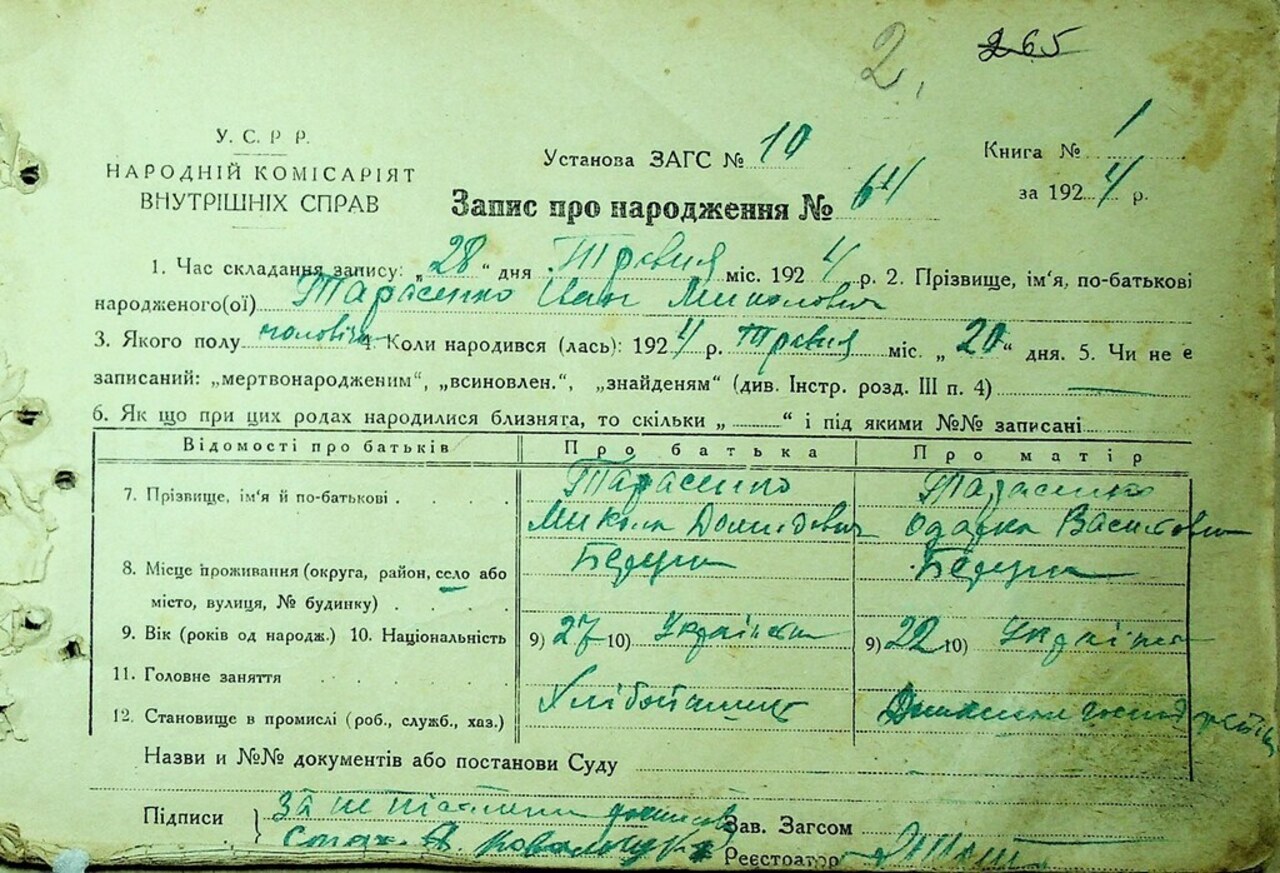 2. 265
У. С. Р Р.
НАРОДНІЙ КОМІСАРІЯТ
ВНУТРІШНІХ СПРАВ
Установа ЗАГС № 10
Книга № 1
Запис про народження № 64
за 1924 р.
1. Час складання запису: „28" дня Травня міс. 1924 р. 2. Прізвище, ім'я, по-батькові
народженого(ої) Тарасенко Иван Миколович
3. Якого полу чоловіча 4. Коли народився (лась): 1924 р. Травня міс. „20" дня. 5. Чи не є
записаний: „мертвонародженим", „всиновлен.", „знайденям" (див. Інстр. розд. III п. 4)
6. Як що при цих родах народилися близнята, то скільки „ " і під якими №№ записані
Відомості про батьків Про батька Про матір
7. Прізвище, ім'я й по-батькові Тарасенко Тарасенко
Микола Одарка Васильовна
8. Місце проживання (округа, район, село або
місто, вулиця, № будинку)
9. Вік (років од народж.) 10. Національність 9) 27 10) Українець 9) 22 10) Українка
11. Головне заняття
12. Становище в промислі (роб., служб., хаз.) Хлібопашец
Назви и №№ документів або постанови Суду
Підписи За
Зав. Загсом
Реєстроатор